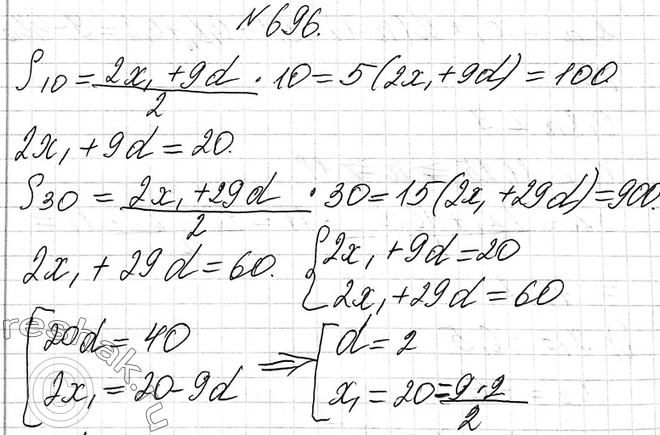 №696.
S₁₀ = (2x₁ + 9d)/2 · 10 = 5(2x₁ + 9d) = 100
2x₁ + 9d = 20.
S₃₀ = (2x₁ + 29d)/2 · 30 = 15(2x₁ + 29d) = 900.
2x₁ + 29d = 60. { 2x₁ + 9d = 20
2x₁ + 29d = 60
[ 20d = 40 ⇒ [ d = 2
2x₁ = 20 - 9d x₁ = 20 = 9·2/2
reshak.ru